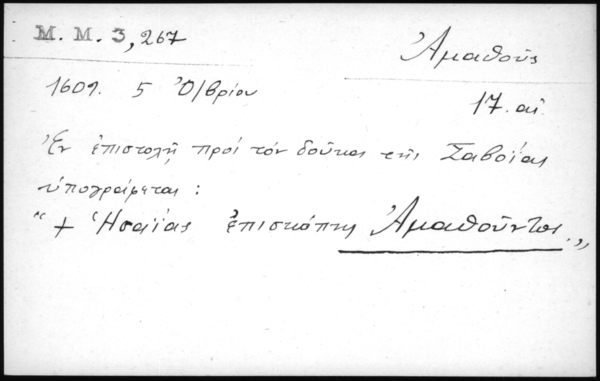 Μ. Μ. 3, 267
Ἀμαθοῦς
1609. 5 Ὀ/βρίου
17. αἰ.
Ἐν ἐπιστολῇ πρὸς τὸν δοῦκα τῆς Σαβοΐας
ὑπογράφεται:
"+ Ἠσαΐας ἐπίσκοπος Ἀμαθοῦντος"